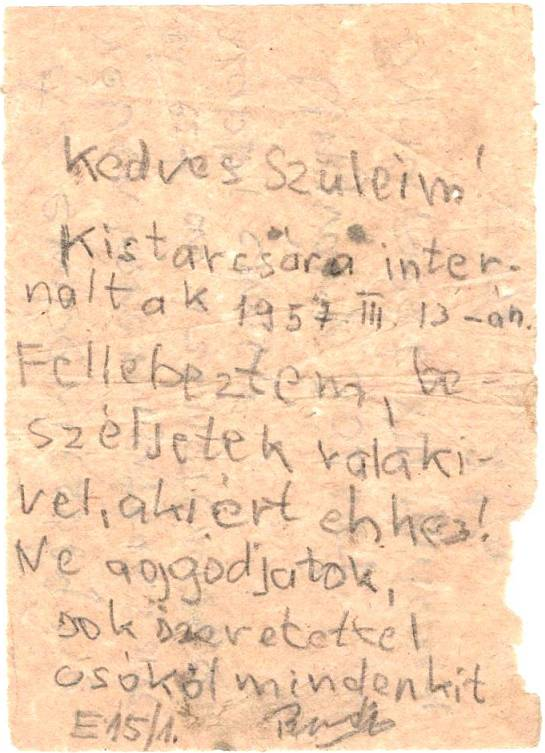 Kedves Szüleim!
Kistarcsára inter-
náltak 1957 III. 13-án.
Fellebeztem, be-
széljetek valaki-
vel, aki ért ehhez!
Ne aggódjatok,
sok szeretettel
csókol mindenkit
E15/1.